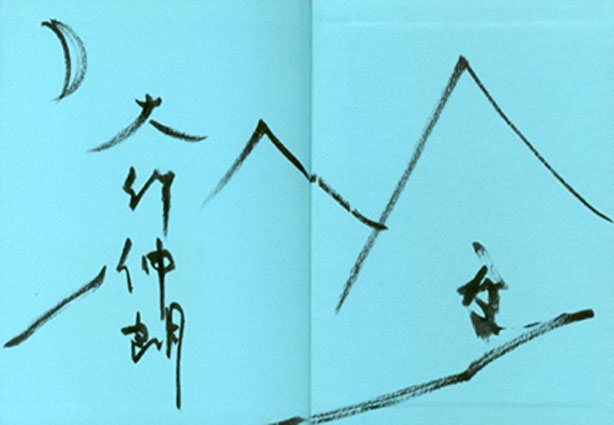 大竹伸朗